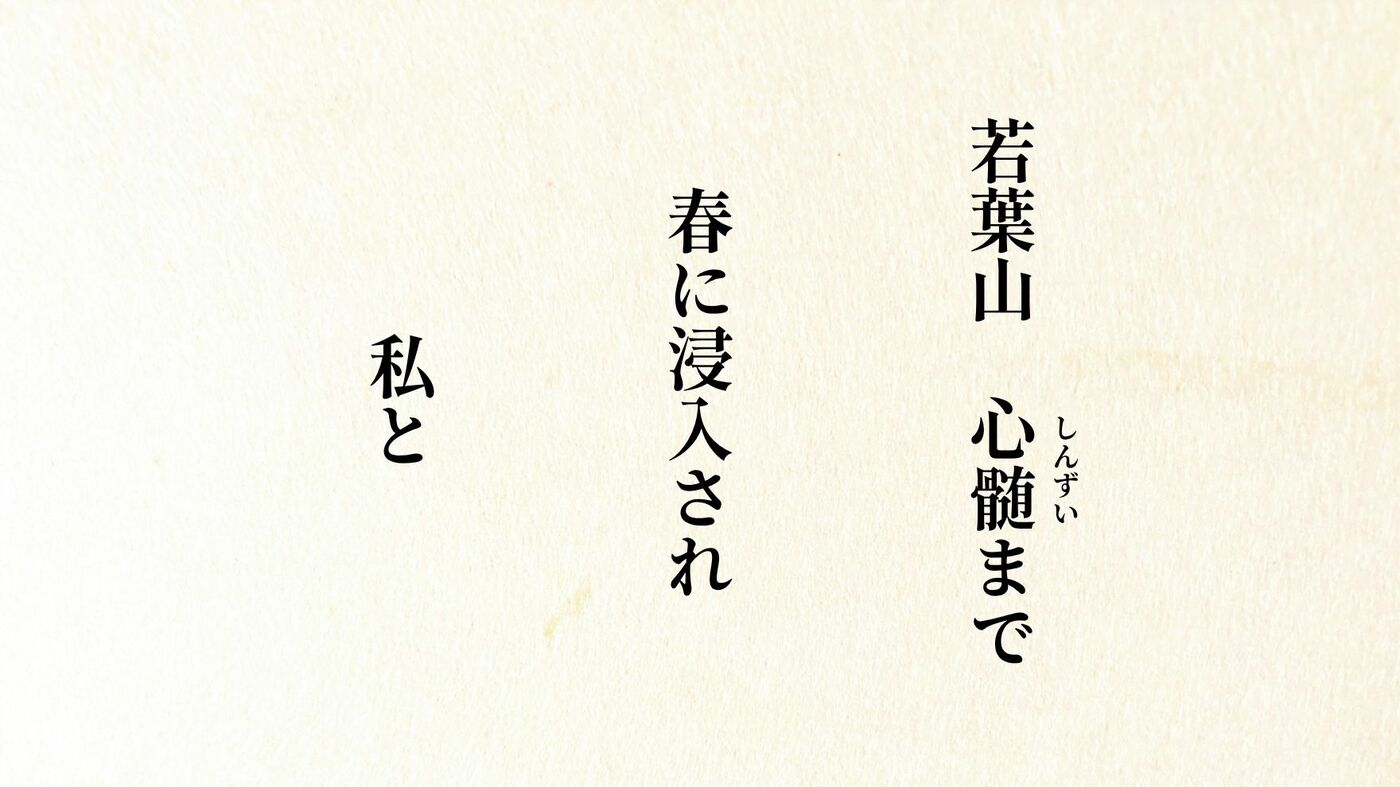 若葉山　心髄まで
しんずい
春に浸入され
私と